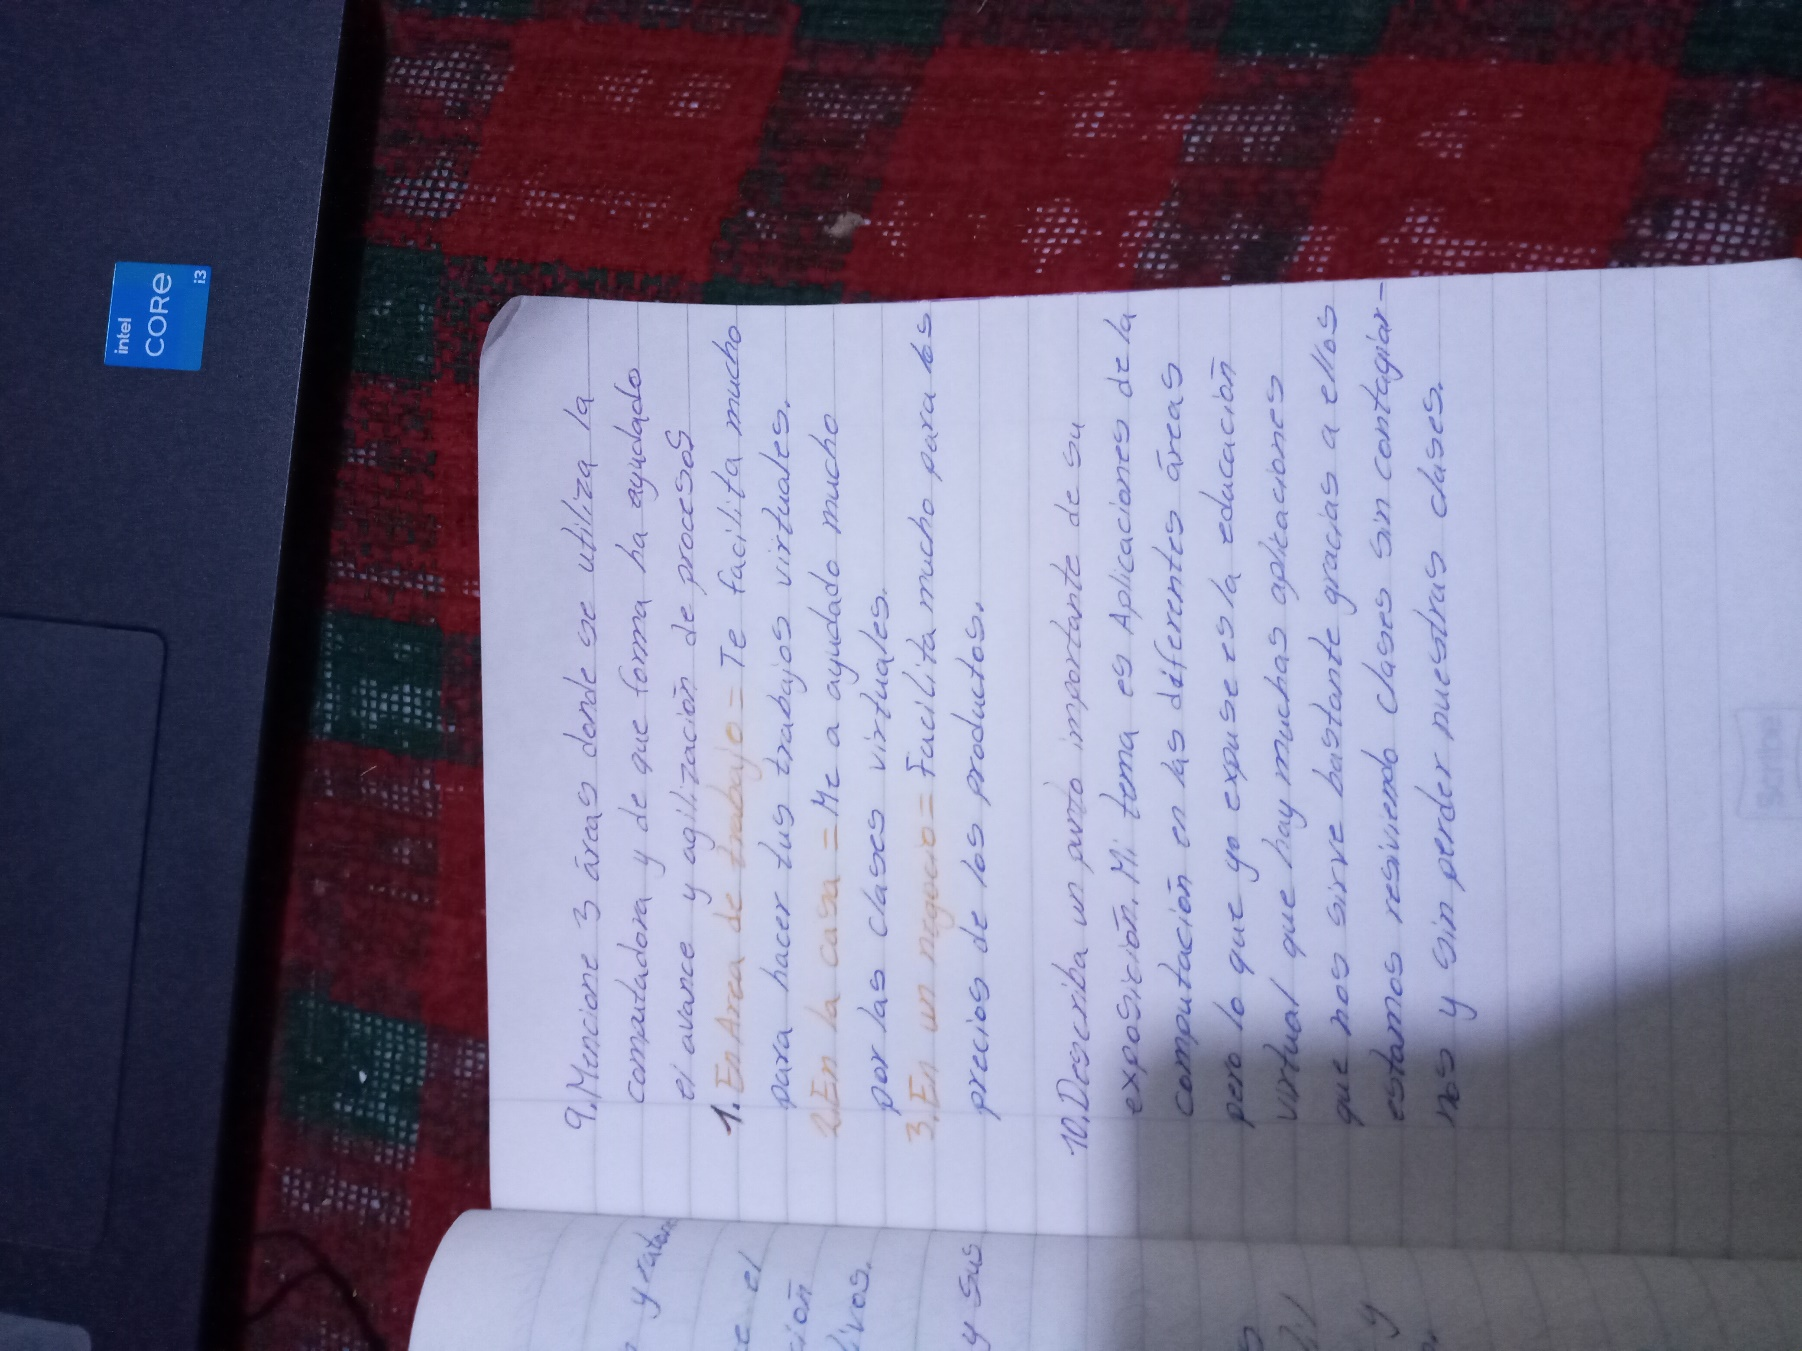 intel
CORE
i3
9. Mencione 3 áreas donde se utiliza la
computadora y de que forma ha ayudado
el avance y agilización de procesos
1. En Area de trabajo = Te facilita mucho
para hacer tus trabajos virtuales.
2. En la casa = Me a ayudado mucho
por las clases virtuales.
3. En un negocio = Facilita mucho para los
precios de los productos.
10. Describa un punto importante de su
exposición. Mi tema es Aplicaciones de la
computación en las diferentes áreas
pero lo que yo expuse es la educación
virtual que hay muchas aplicaciones
que nos sirve bastante gracias a ellos
estamos resiviendo clases sin contagiar-
nos y sin perder nuestras clases.
Scribe
y
e el
ción
tivos.
y sus
y